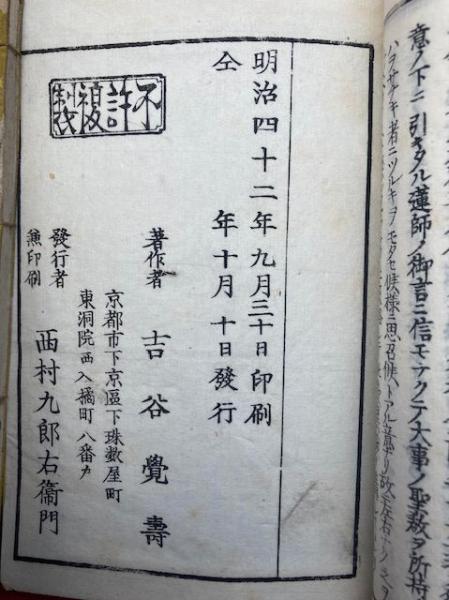 意ノ下ニ引キタル蓮師ノ御言ニ信モナクテ大事ノ聖教ヲ所持
ハヲサナキ者ニツルギヲモタセ候様ニ思召候トアル意ナリ故ニ左右ナク
明治四十二年九月三十日印刷
仝年十月十日發行
不許複製
著作者 吉谷覺壽
京都市下京區下珠數屋町
東洞院西入橘町八番戸
發行者
兼印刷
西村九郎右衞門